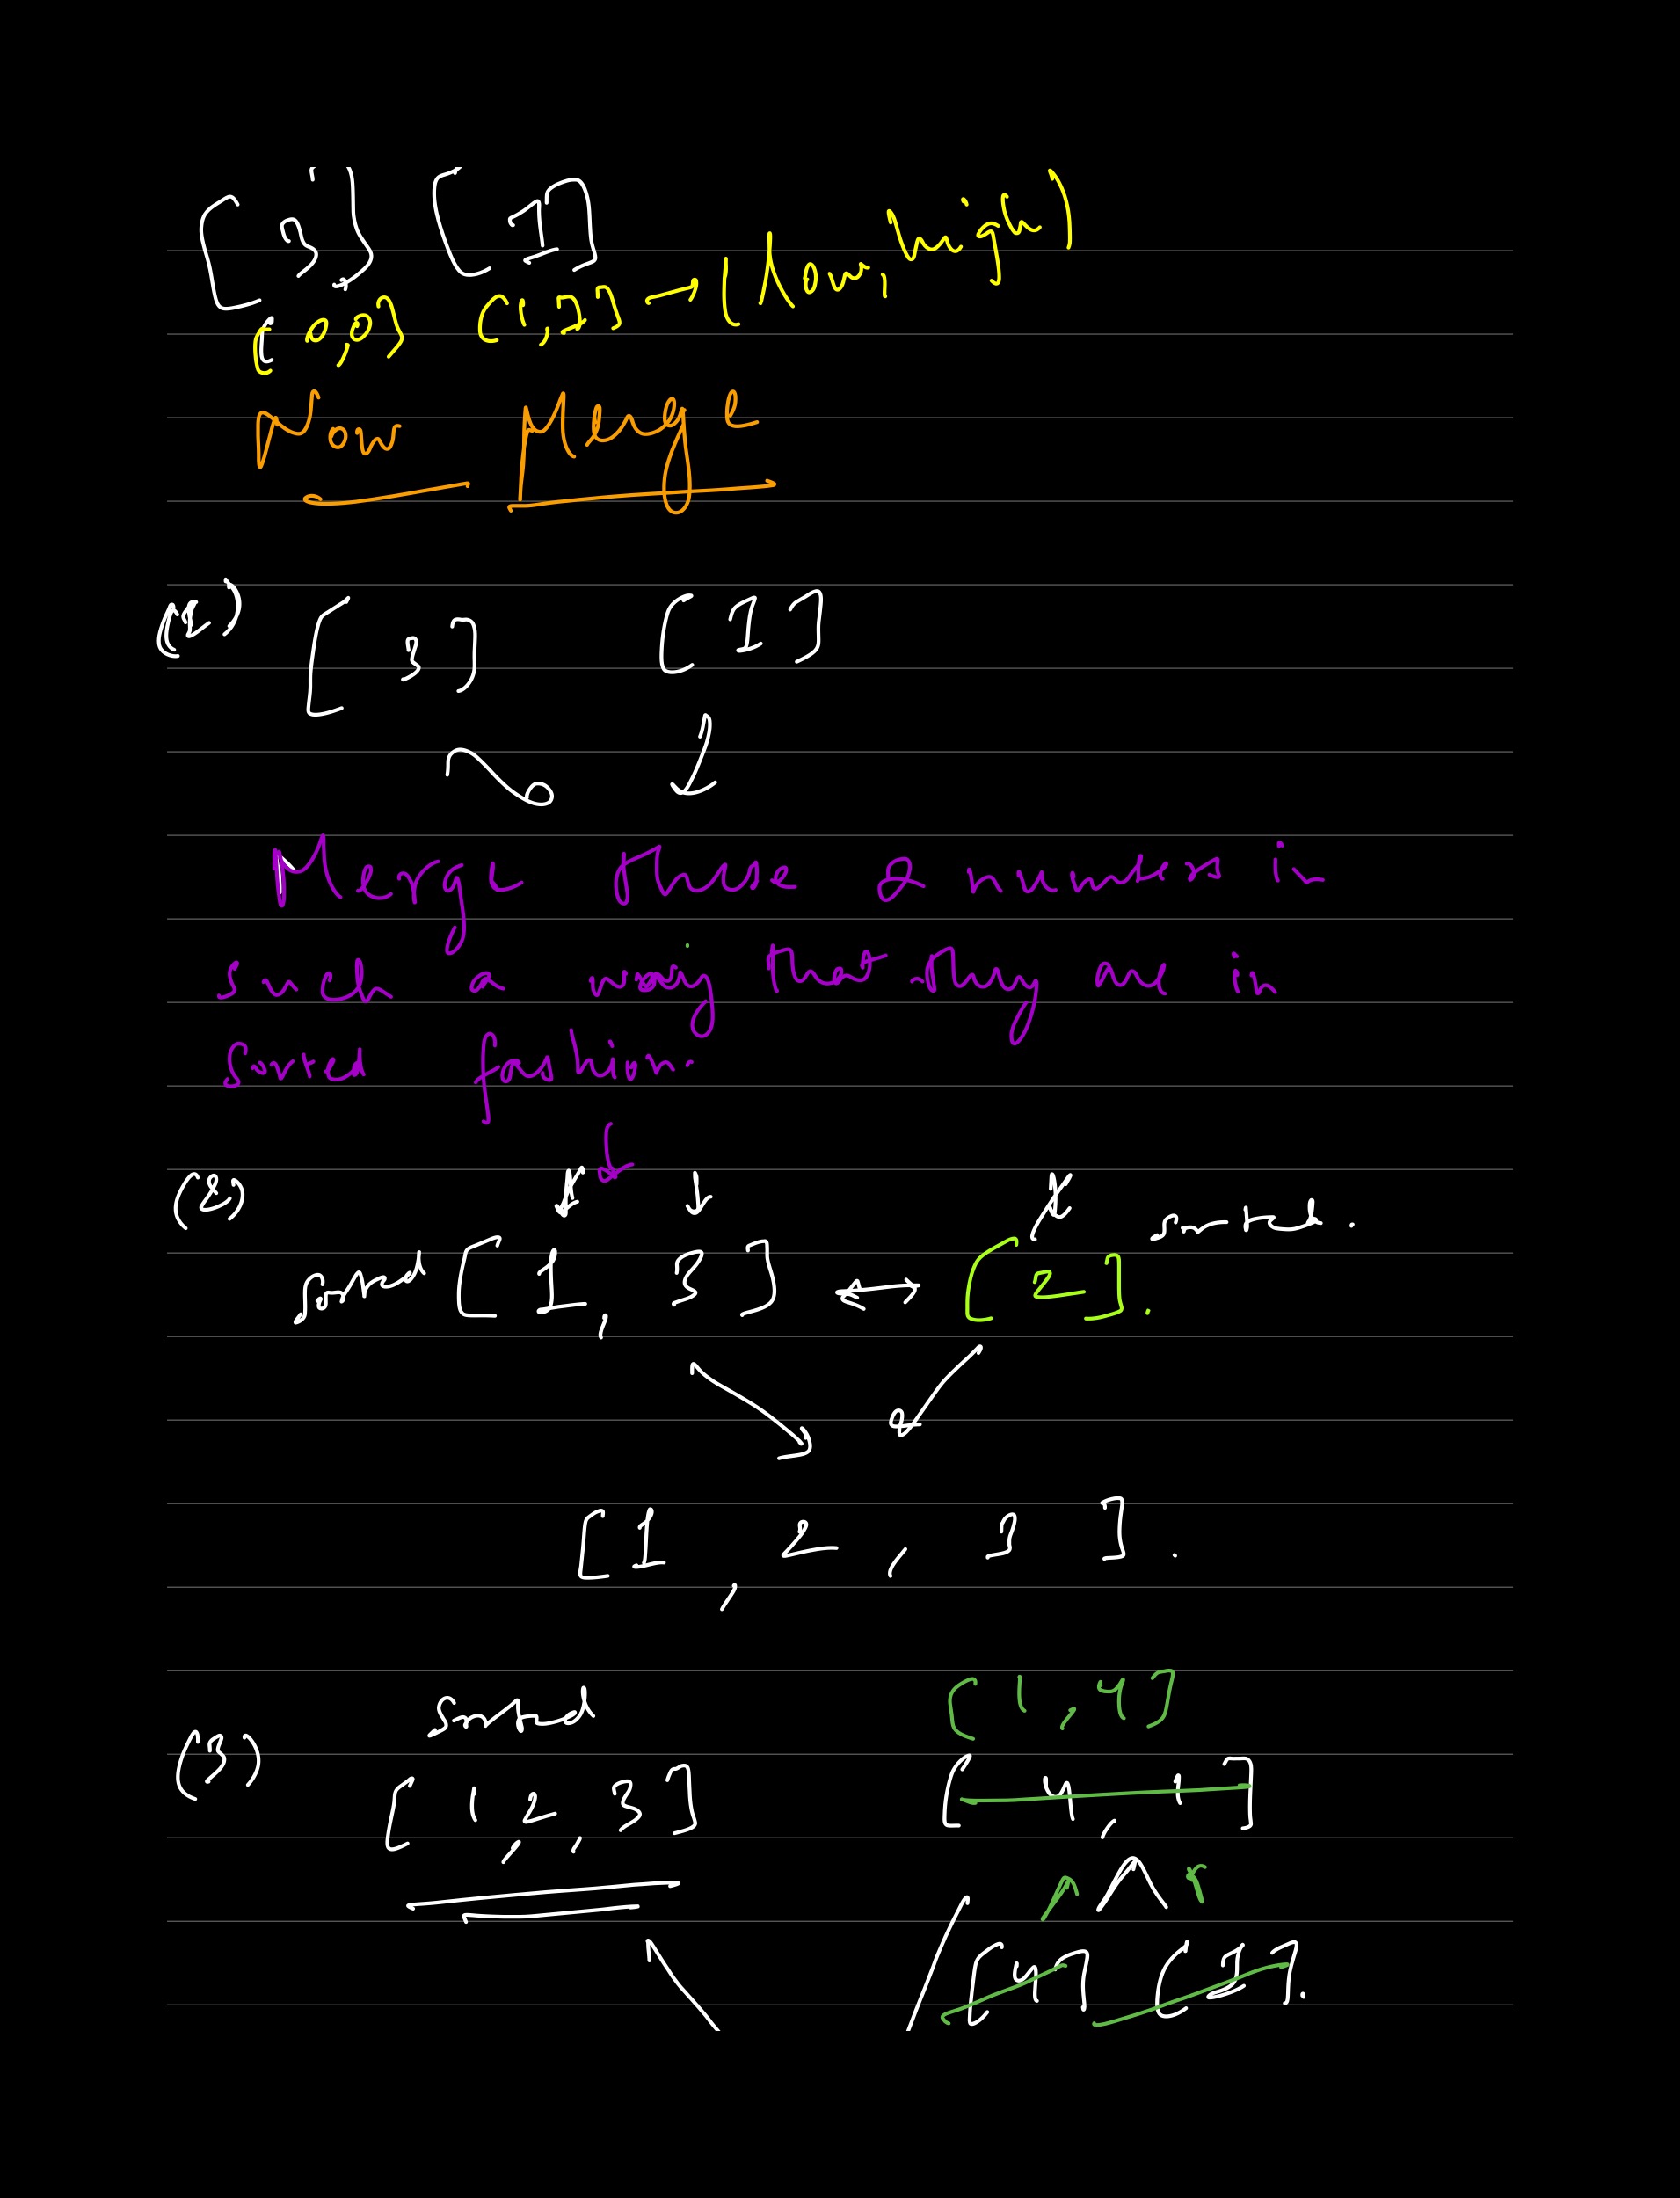 [3] [1]
[0,0] [1,1] → (low, high)
Now Merge
(1) [3] [1]
Merge these 2 numbers in
such a way that they are in
sorted fashion.
(2) sorted.
sorted [1, 3] ↔ [2].
[1, 2, 3].
sorted [1, 4]
(3) [1, 2, 3] [4, 1]
[4] [1].